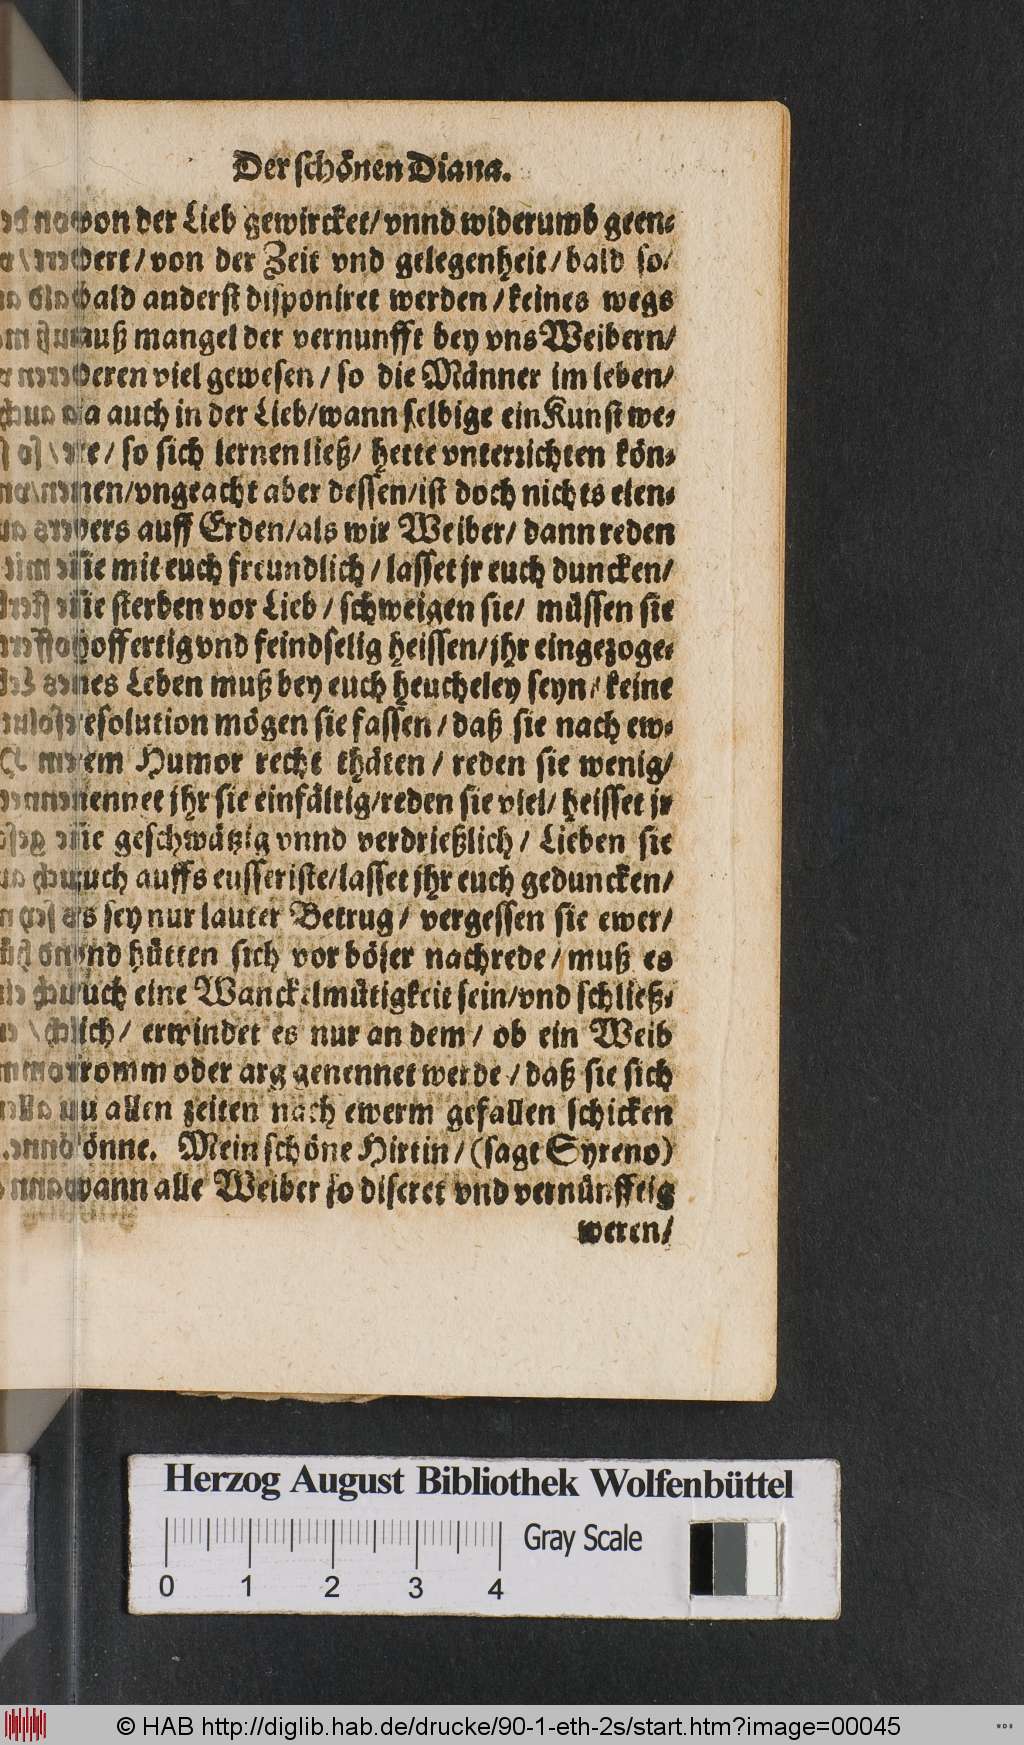 Der schönen Diana.
von der Lieb gewircket/ vnnd widerumb geen-
dert/ von der Zeit vnd gelegenheit/ bald so/
bald anderst disponiret werden/ keines wegs
auß mangel der vernunfft bey vns Weibern/
deren viel gewesen/ so die Männer im leben/
ja auch in der Lieb/ wann selbige ein Kunst we-
re/ so sich lernen ließ/ hette vnterrichten kön-
nen/ vngeacht aber dessen/ ist doch nichts elen-
ders auff Erden/ als wir Weiber/ dann reden
sie mit euch freundlich/ lasset jr euch duncken/
sie sterben vor Lieb/ schweigen sie/ müssen sie
hoffertig vnd feindselig heissen/ jhr eingezoge-
nes Leben muß bey euch heucheley seyn/ keine
resolution mögen sie fassen/ daß sie nach ew-
rem Humor recht thäten/ reden sie wenig/
nennet jhr sie einfältig/ reden sie viel/ heisset jr
sie geschwätzig vnnd verdrießlich/ Lieben sie
euch auffs eusseriste/ lasset jhr euch geduncken/
es sey nur lauter Betrug/ vergessen sie ewer/
vnd hütten sich vor böser nachrede/ muß es
auch eine Wanckelmütigkeit sein/ vnd schließ-
lich/ erwindet es nur an dem/ ob ein Weib
fromm oder arg genennet werde/ daß sie sich
zu allen zeiten nach ewerm gefallen schicken
könne. Mein schöne Hirtin/ (sagt Syreno)
wann alle Weiber so discret vnd vernünfftig
weren/
Herzog August Bibliothek Wolfenbüttel
Gray Scale
0 1 2 3 4
© HAB http://diglib.hab.de/drucke/90-1-eth-2s/start.htm?image=00045